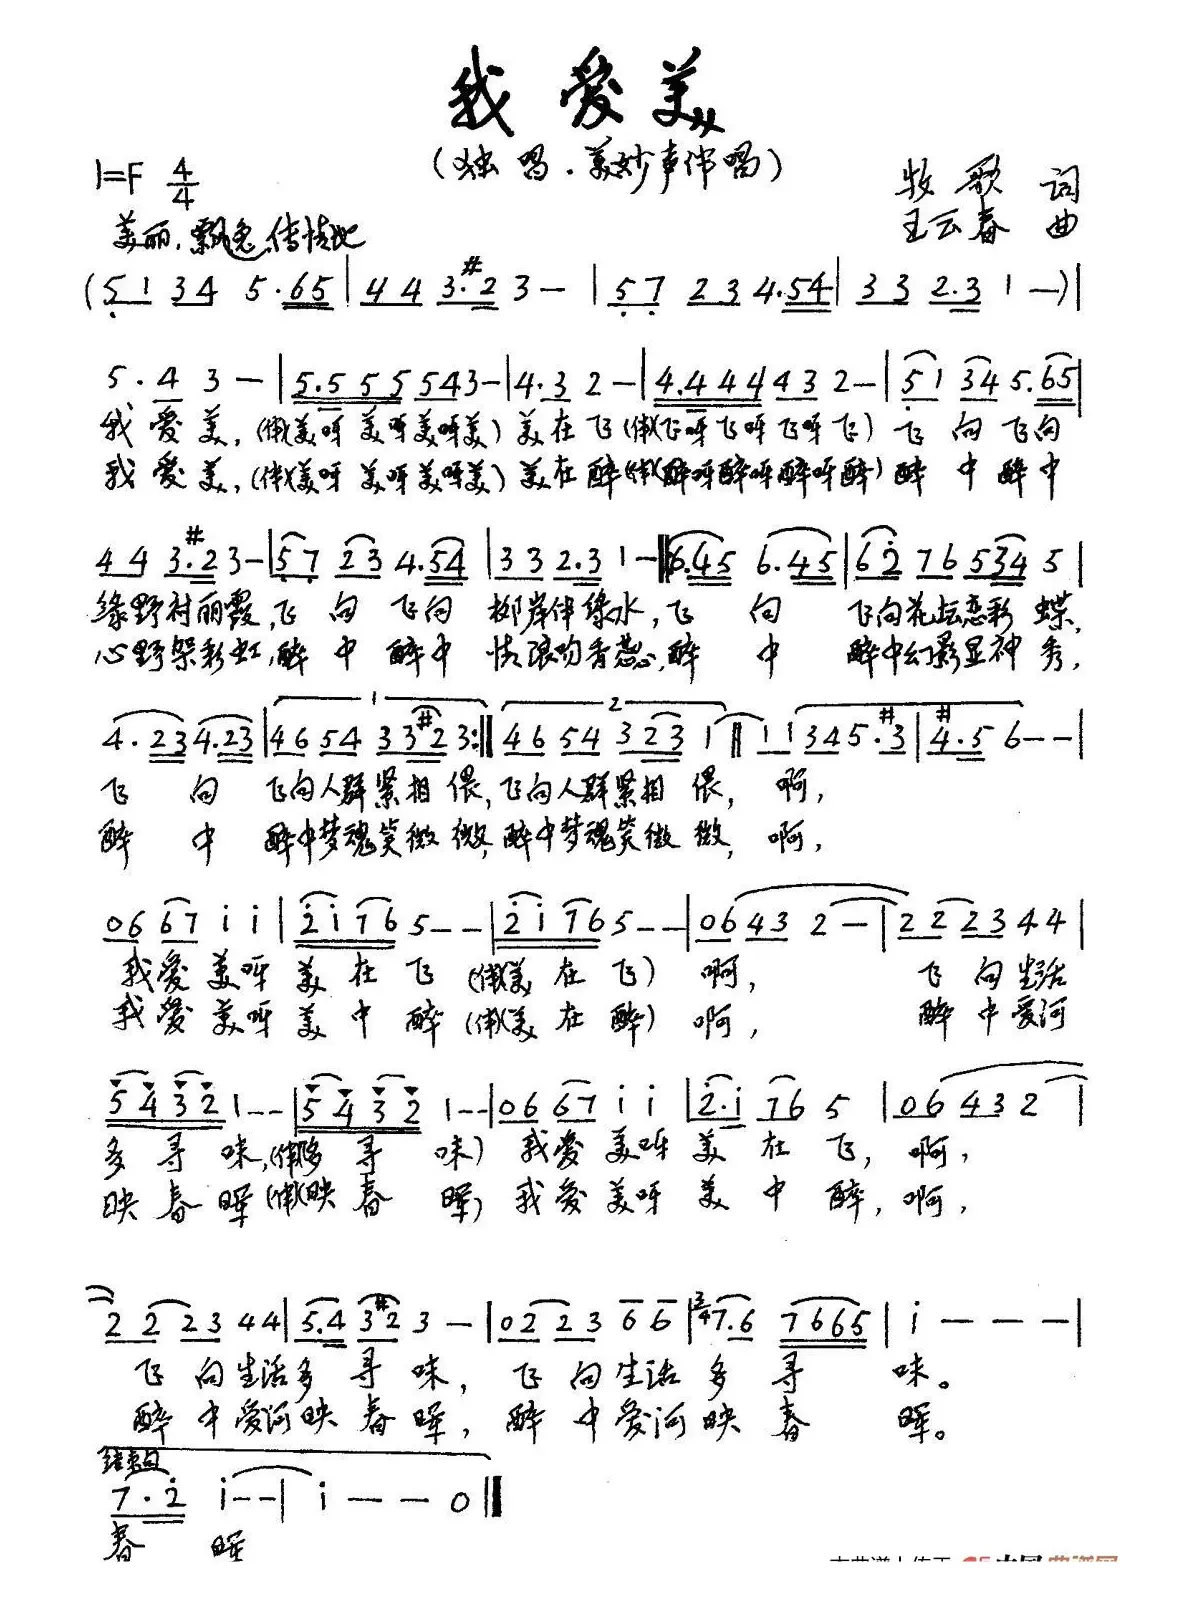 我爱美
(独唱.美妙声伴唱)
1=F 4/4
牧歌 词
美丽、飘逸、传情地
王云春 曲
(5 1 3 4 5 . 6 5 | 4 4 3 . #2 3 - | 5 7 2 3 4 . 5 4 | 3 3 2 . 3 1 - ) |
5 . 4 3 - | 5 . 5 5 5 5 4 3 - | 4 . 3 2 - | 4 . 4 4 4 4 3 2 - | 5 1 3 4 5 . 6 5 |
我爱美,(伴)(美呀美呀美呀美) 美在飞(伴)(飞呀飞呀飞呀飞) 飞向飞向
我爱美,(伴)(美呀美呀美呀美) 美在醉(伴)(醉呀醉呀醉呀醉) 醉中醉中
4 4 3 . #2 3 - | 5 7 2 3 4 . 5 4 | 3 3 2 . 3 1 - 6 . 4 5 6 . 4 5 | 6 2 7 6 5 3 4 5 |
绿野衬丽霞,飞向飞向柳岸伴绿水,飞向飞向花坛恋彩蝶,
心野架彩虹,醉中醉中情浪吻香蕊,醉中醉中幻影显神秀,
4 . 2 3 4 . 2 3 | 1 4 6 5 4 3 3 #2 3 :‖ 2 4 6 5 4 3 2 3 1 ‖ 1 1 3 4 5 . #3 | #4 . 5 6 - - |
飞向飞向人群紧相偎,飞向人群紧相偎,啊,
醉中醉中梦魂笑微微,醉中梦魂笑微微,啊,
0 6 6 7 i i | 2 i 7 6 5 - - | 2 i 7 6 5 - - | 0 6 4 3 2 - | 2 2 2 3 4 4 |
我爱美呀美在飞(伴)(美在飞) 啊,飞向生活
我爱美呀美中醉(伴)(美在醉) 啊,醉中爱河
5 4 3 2 1 - - | 5 4 3 2 1 - - | 0 6 6 7 i i | 2 . i 7 6 5 | 0 6 4 3 2 |
多寻味,(伴)(多寻味) 我爱美呀美在飞,啊,
映春晖(伴)(映春晖) 我爱美呀美中醉,啊,
2 2 2 3 4 4 | 5 . 4 3 #2 3 - | 0 2 2 3 6 6 | 3/4 7 . 6 7 6 6 5 | i - - - |
飞向生活多寻味,飞向生活多寻味。
醉中爱河映春晖,醉中爱河映春晖。
结束句
7 . 2 i - - | i - - 0 ‖
春晖